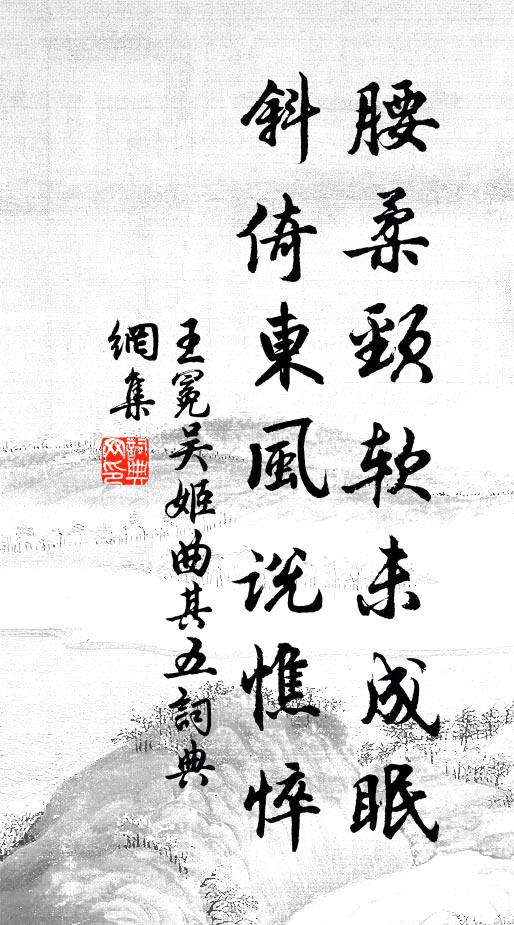 腰柔頸軟未成眠
斜倚東風說憔悴
王冕吴姬曲其五詞典
網集
詞典
网印